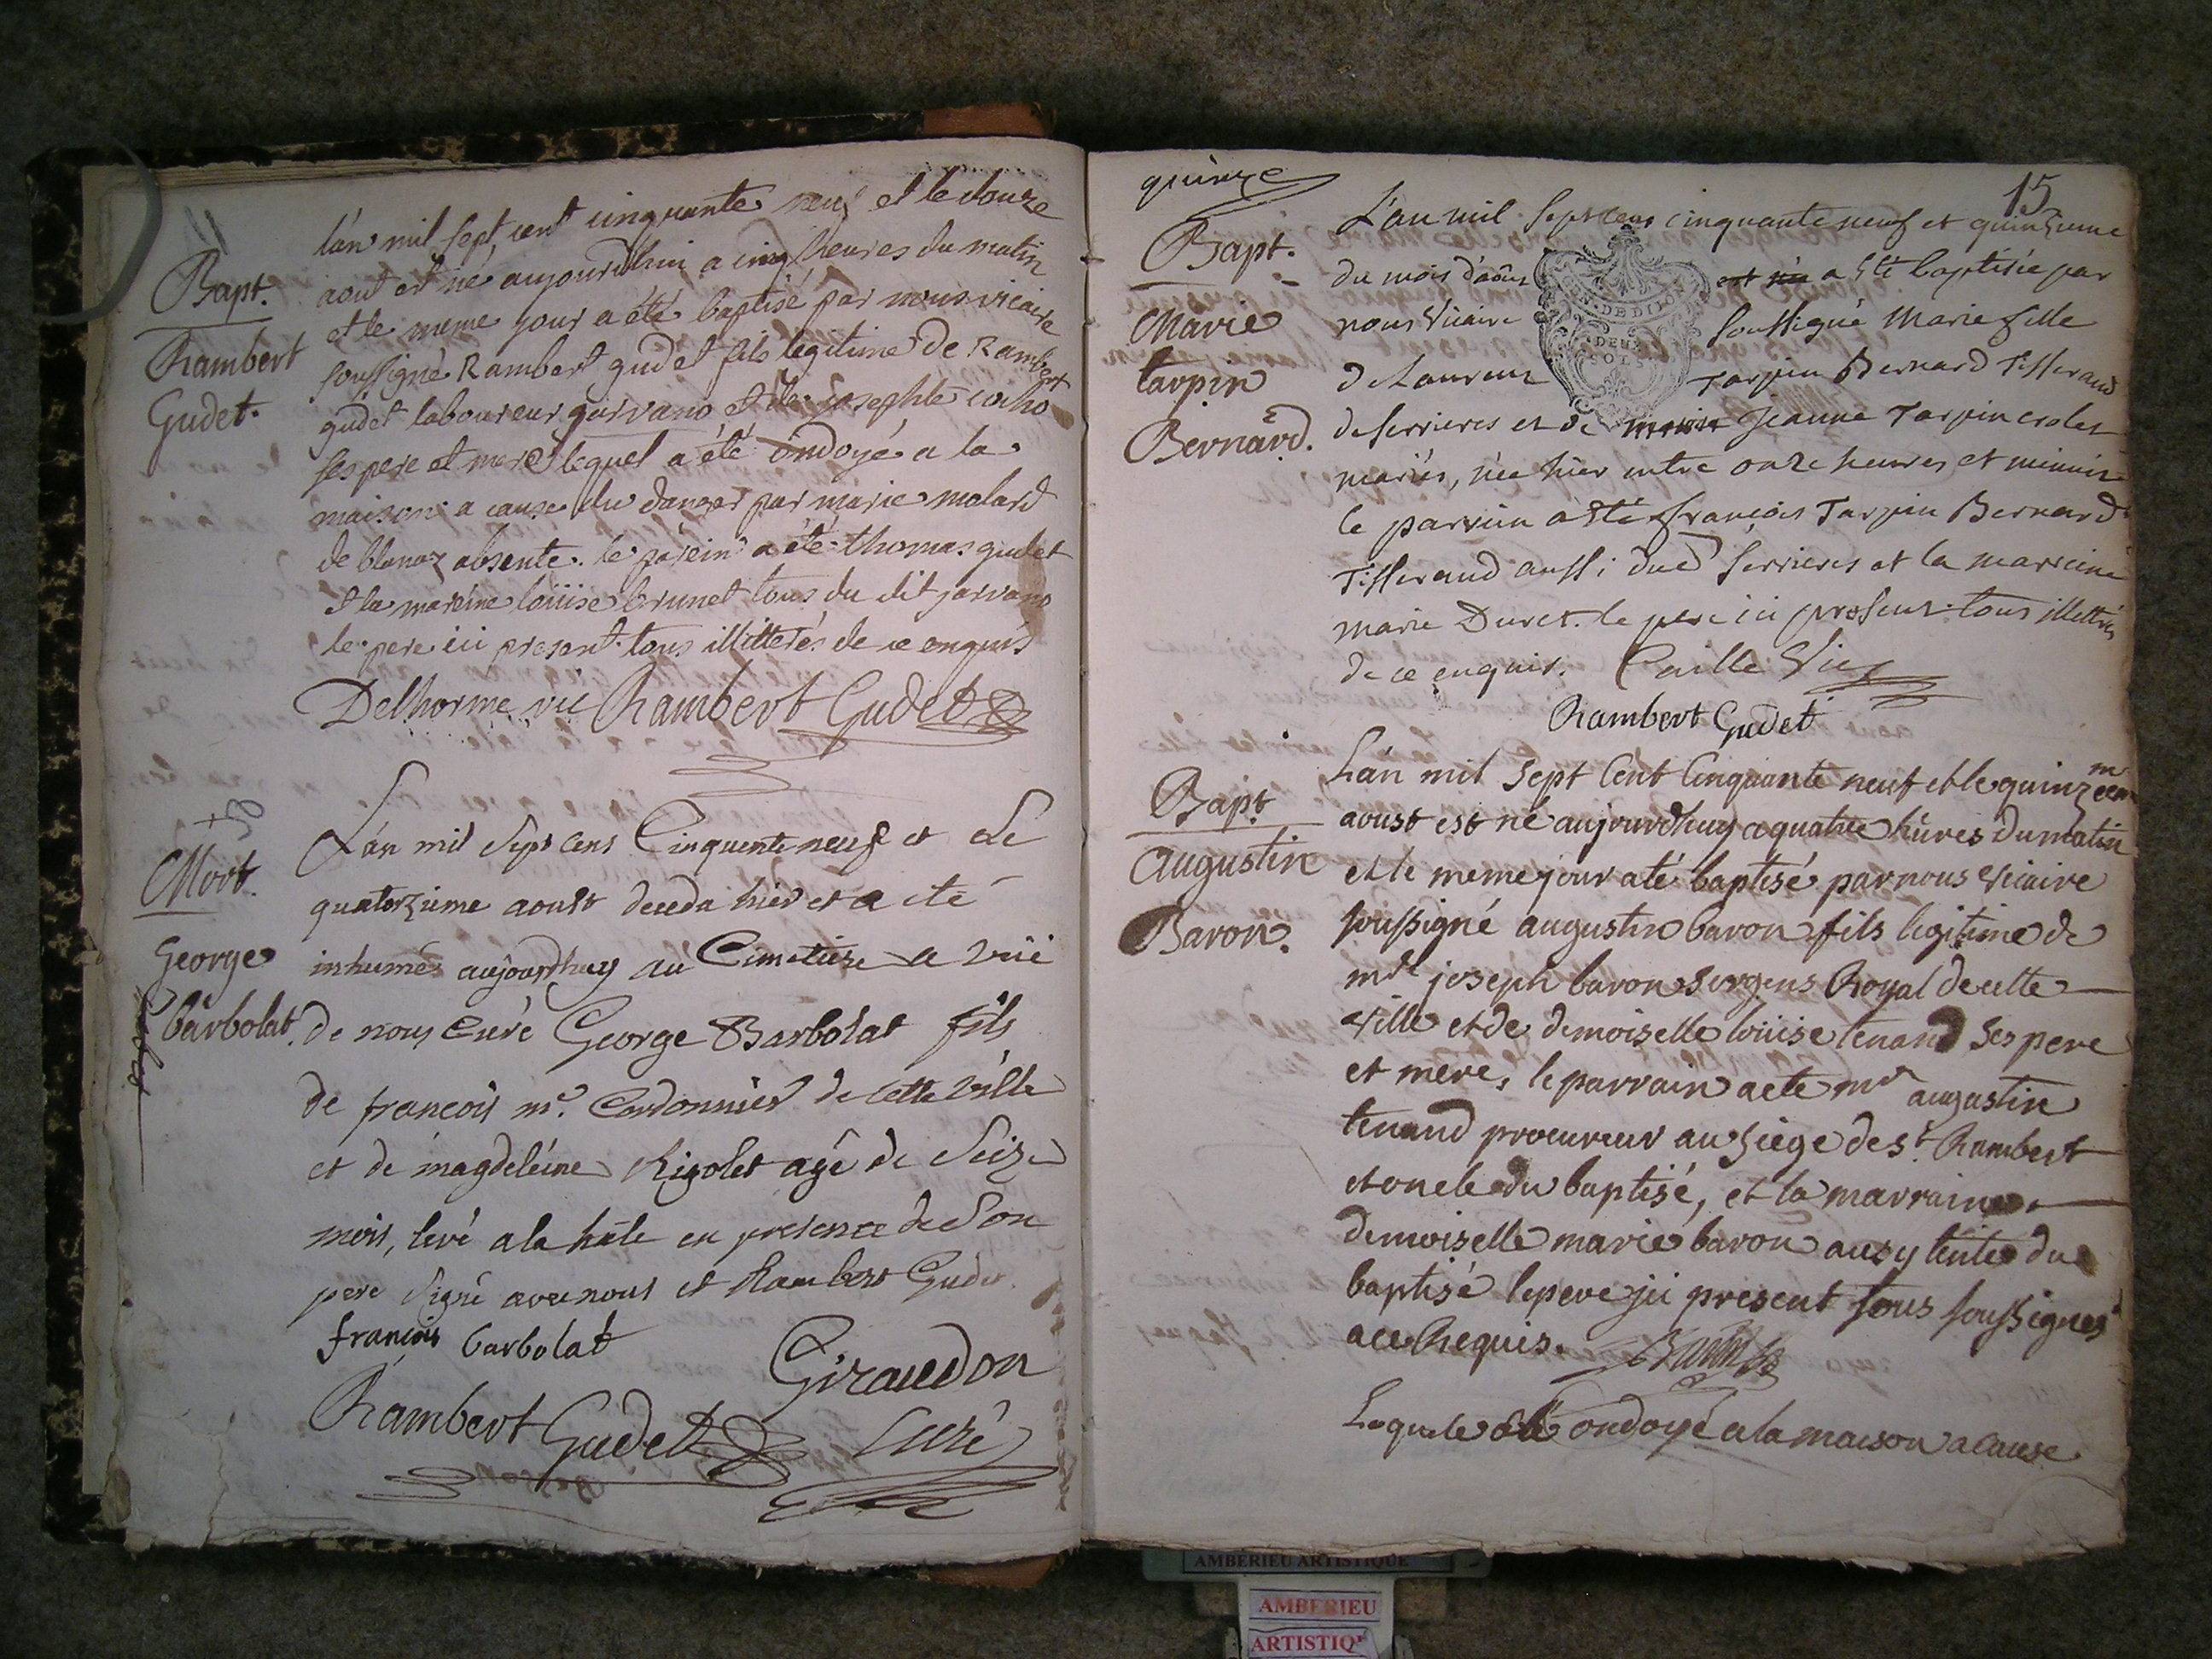 Bapt.
Rambert
Gudet.
lán mil sept cent cinquante neuf et le douze
aout est né aujourdhui a cinq heures du matin
et le meme jour a été baptisé par nous vicaire
soussigné Rambert gudet fils legitime de Rambert
gudet laboureur et de josephte
ses pere et mere lequel a été ondoyé a la
maison a cause du danger par marie molard
de blanaz absente. le parein a été thomas gudet
et la mareine loüise brunet tous du dit
le pere ici present tous illitterés de ce enquis
Delhorme vic Rambert Gudet
Mort.
George
barbolat.
Lán mil Sept cens Cinquente neuf et Le
quatorzieme aoust deceda hier et a eté
inhumé aujourdhuy au Cimetiere a
de nous Curé George Barbolat fils
de francois mᵉ. Cordonnier de cette ville
et de magdeleine Rigolet agé de Seize
mois, levé a la hale en presence de Son
pere Signé avec nous et Rambert Gudet
francois barbolat
Giraudon
Rambert Gudet Curé
quinze
15
Bapt.
Marie
tarpin
Bernard.
L'an mil Sept cens cinquante neuf et quinzieme
du mois d'aôus est née a été baptisée par
nous Vicaire soussigné Marie fille
de Laurent Tarpin Bernard Tisserand
GEN. DE DIJON
DEUX
SOLS
de serrieres et de Jeanne Tarpin
mariés, née hier entre onze heures et minuit
le parrein à été françois Tarpin Bernard
Tisserand aussi dud serrieres et la marreine
marie Duret. le pere ici present tous illettrés
de ce enquis. Caille Vic
Rambert Gudet
Bapt.
augustin
Baron.
Lán mil sept Cent Cinquante neuf et le quinzeem
aoust est né aujourdhuy a quatre hures du matin
et le meme jour a té baptisé par nous viciaire
soussigné augustin baron fils legitime de
joseph baron sergens Royal de cette
ville et de demoiselle loüise tenand Ses pere
et mere, le parrain a ete augustin
tenand procureur au siege de Sᵗ. Rambert
et oncle du baptisé, et la marraine
demoiselle marie baron ausy tente du
baptisé le pere ici present tous soussignes
a ce Requis.
Lequele été ondoyé a la maison a Cause
AMBÉRIEU ARTISTIQUE
AMBERIEU
ARTISTIQ